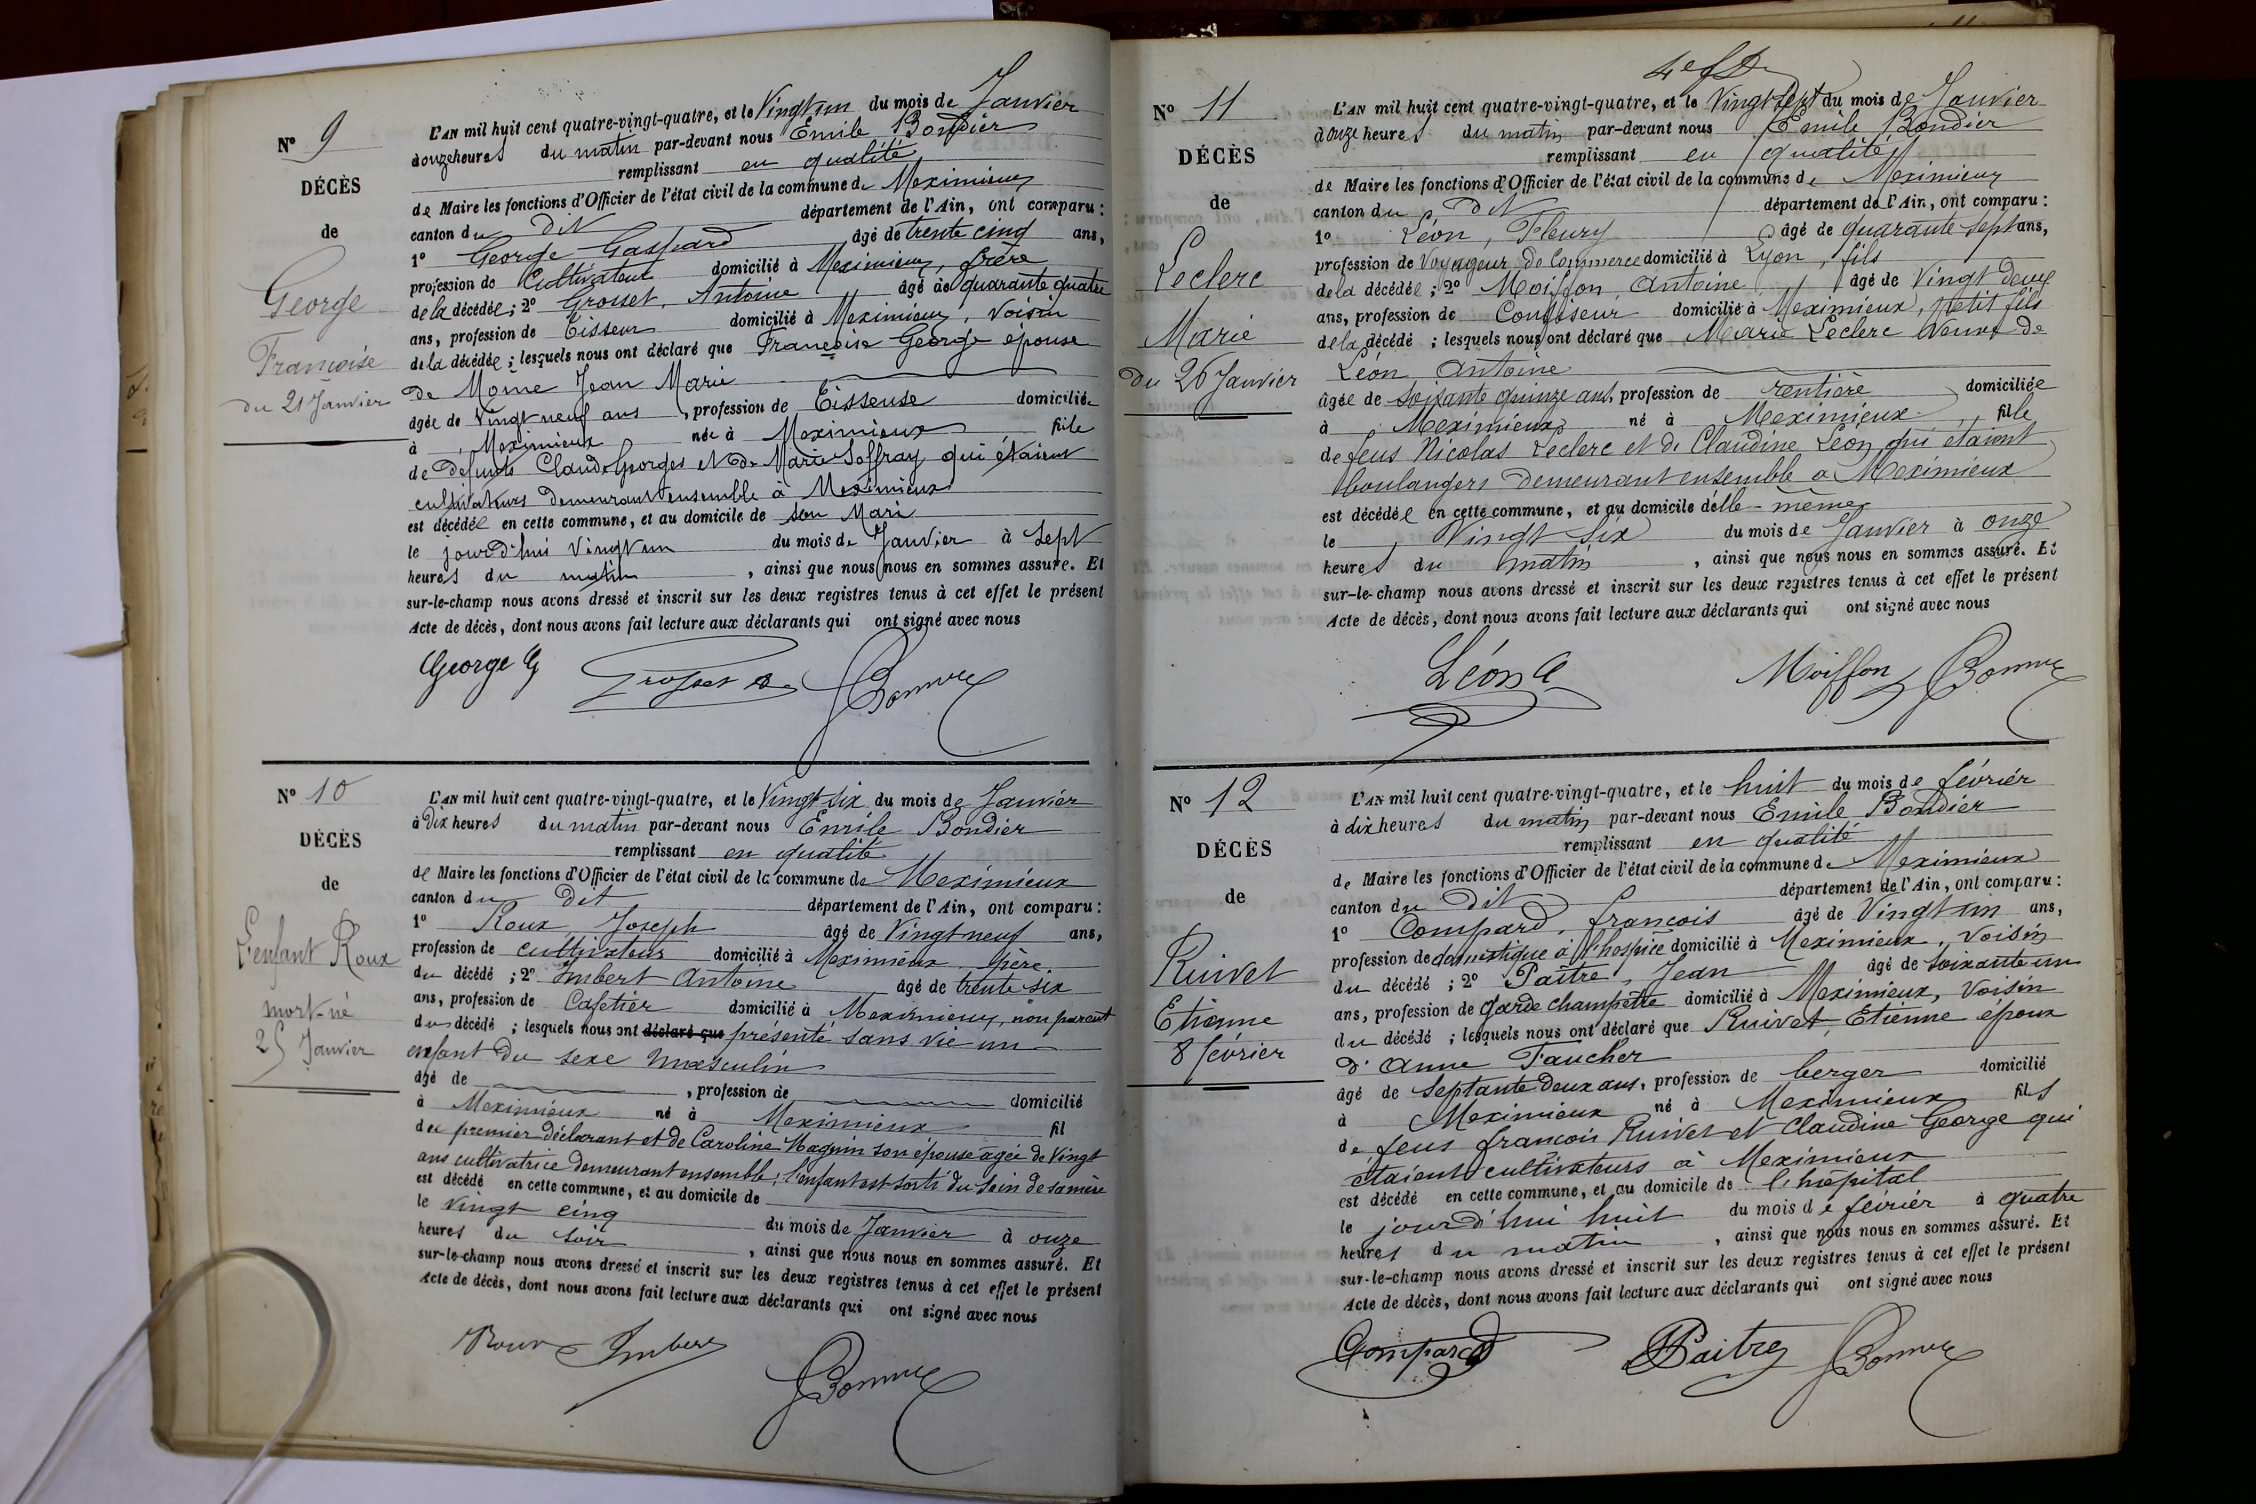 N° 9
DÉCÈS
de
George
Françoise
du 21 Janvier
L'AN mil huit cent quatre-vingt-quatre, et le Vingt un du mois de Janvier
à onze heures du matin par-devant nous Emile Bondier
remplissant en qualité
de Maire les fonctions d'Officier de l'état civil de la commune de Meximieux
canton du Dit département de l'Ain, ont comparu :
1° George Gaspard âgé de trente cinq ans,
profession de Cultivateur domicilié à Meximieux, frère
de la décédée ; 2° Grosset, Antoine âgé de quarante quatre
ans, profession de Tisseur domicilié à Meximieux, Voisin
de la décédée ; lesquels nous ont déclaré que Françoise George épouse
de Morne Jean Marie
âgée de Vingt neuf ans, profession de Tisseuse domiciliée
à Meximieux née à Meximieux fille
de défunts Claude Georges et de Marie Soffray qui étaient
cultivateurs demeurant ensemble à Meximieux
est décédée en cette commune, et au domicile de son Mari
le jourd'hui Vingt un du mois de Janvier à Sept
heures du matin, ainsi que nous nous en sommes assuré. Et
sur-le-champ nous avons dressé et inscrit sur les deux registres tenus à cet effet le présent
Acte de décès, dont nous avons fait lecture aux déclarants qui ont signé avec nous
George G Grosset A
N° 10
DÉCÈS
de
L'enfant Roux
mort-né
25 Janvier
L'AN mil huit cent quatre-vingt-quatre, et le Vingt six du mois de Janvier
à Dix heures du matin par-devant nous Emile Bondier
remplissant en qualité
de Maire les fonctions d'Officier de l'état civil de la commune de Meximieux
canton du Dit département de l'Ain, ont comparu :
1° Roux, Joseph âgé de Vingt neuf ans,
profession de cultivateur domicilié à Meximieux père
du décédé ; 2° Imbert Antoine âgé de trente six
ans, profession de Cafetier domicilié à Meximieux, non parent
du décédé ; lesquels nous ont déclaré que présenté sans vie un
enfant du sexe masculin
âgé de , profession de domicilié
à Meximieux né à Meximieux fil
du premier déclarant et de Caroline Maguin son épouse âgée de Vingt
ans cultivatrice demeurant ensemble ; l'enfant est sorti du sein de sa mère
est décédé en cette commune, et au domicile de
le Vingt cinq du mois de Janvier à onze
heures du soir, ainsi que nous nous en sommes assuré. Et
sur-le-champ nous avons dressé et inscrit sur les deux registres tenus à cet effet le présent
Acte de décès, dont nous avons fait lecture aux déclarants qui ont signé avec nous
Roux Imbert
N° 11
DÉCÈS
de
Leclerc
Marie
du 26 Janvier
L'AN mil huit cent quatre-vingt-quatre, et le Vingt sept du mois de Janvier
à onze heures du matin par-devant nous Emile Bondier
remplissant en qualité
de Maire les fonctions d'Officier de l'état civil de la commune de Meximieux
canton du Dit département de l'Ain, ont comparu :
1° Léon, Fleury âgé de quarante sept ans,
profession de Voyageur de Commerce domicilié à Lyon, fils
de la décédée ; 2° Moiffon, Antoine âgé de Vingt Deux
ans, profession de Confiseur domicilié à Meximieux, petit fils
de la décédé ; lesquels nous ont déclaré que Marie Leclerc Veuve de
Léon Antoine
âgée de soixante quinze ans, profession de rentière domiciliée
à Meximieux né à Meximieux fille
de feus Nicolas Leclerc et de Claudine Léon qui étaient
boulangers demeurant ensemble à Meximieux
est décédée en cette commune, et au domicile d'elle-même
le Vingt Six du mois de Janvier à onze
heures du matin, ainsi que nous nous en sommes assuré. Et
sur-le-champ nous avons dressé et inscrit sur les deux registres tenus à cet effet le présent
Acte de décès, dont nous avons fait lecture aux déclarants qui ont signé avec nous
Léon Moiffon
N° 12
DÉCÈS
de
Ruivet
Etienne
8 février
L'AN mil huit cent quatre-vingt-quatre, et le huit du mois de février
à dix heures du matin par-devant nous Emile Bondier
remplissant en qualité
de Maire les fonctions d'Officier de l'état civil de la commune de Meximieux
canton du Dit département de l'Ain, ont comparu :
1° Compard, françois âgé de Vingt un ans,
profession de domestique à l'hospice domicilié à Meximieux, Voisin
du décédé ; 2° Paitre, Jean âgé de soixante un
ans, profession de garde champêtre domicilié à Meximieux, Voisin
du décédé ; lesquels nous ont déclaré que Ruivet, Etienne époux
d'Anne Faucher
âgé de septante deux ans, profession de berger domicilié
à Meximieux né à Meximieux fils
de feus françois Ruivet et Claudine George qui
étaient cultivateurs à Meximieux
est décédé en cette commune, et au domicile de l'hôpital
le jourd'hui huit du mois de février à quatre
heures du matin, ainsi que nous nous en sommes assuré. Et
sur-le-champ nous avons dressé et inscrit sur les deux registres tenus à cet effet le présent
Acte de décès, dont nous avons fait lecture aux déclarants qui ont signé avec nous
Compard Paitre